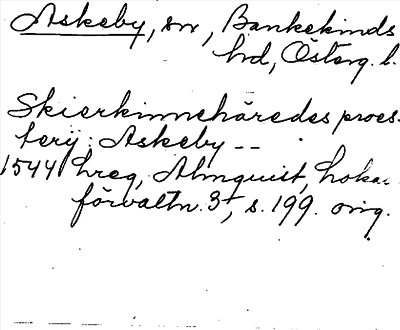 Askeby, sn, Bankekinds
hd, Österg. l.
Skierkinnehäredes proes-
terij: Askeby --
1544 hreg, Almquist, Loka-
förvaltn. 3, s. 199. orig.